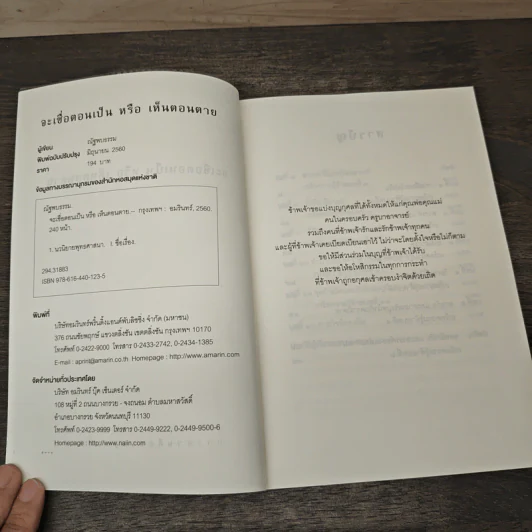 จะเชื่อตอนเป็น หรือ เห็นตอนตาย
ผู้เขียน ณัฐพบธรรม
พิมพ์ฉบับปรับปรุง มิถุนายน 2560
ราคา 194 บาท
ข้อมูลทางบรรณานุกรมของสำนักหอสมุดแห่งชาติ
ณัฐพบธรรม.
จะเชื่อตอนเป็น หรือ เห็นตอนตาย.-- กรุงเทพฯ : อมรินทร์, 2560.
240 หน้า.
1. นวนิยายพุทธศาสนา. I. ชื่อเรื่อง.
294.31883
ISBN 978-616-440-123-5
พิมพ์ที่
บริษัทอมรินทร์พริ้นติ้งแอนด์พับลิชชิ่ง จำกัด (มหาชน)
376 ถนนชัยพฤกษ์ แขวงตลิ่งชัน เขตตลิ่งชัน กรุงเทพฯ 10170
โทรศัพท์ 0-2422-9000 โทรสาร 0-2433-2742, 0-2434-1385
E-mail : aprint@amarin.co.th Homepage : http://www.amarin.com
จัดจำหน่ายทั่วประเทศโดย
บริษัท อมรินทร์ บุ๊ค เซ็นเตอร์ จำกัด
108 หมู่ที่ 2 ถนนบางกรวย - จงถนอม ตำบลมหาสวัสดิ์
อำเภอบางกรวย จังหวัดนนทบุรี 11130
โทรศัพท์ 0-2423-9999 โทรสาร 0-2449-9222, 0-2449-9500-6
Homepage : http://www.naiin.com
ข้าพเจ้าขอแบ่งบุญกุศลที่ได้ทั้งหมดให้แก่คุณพ่อคุณแม่
คนในครอบครัว ครูบาอาจารย์
รวมถึงคนที่ข้าพเจ้ารักและรักข้าพเจ้าทุกคน
และผู้ที่ข้าพเจ้าเคยเบียดเบียนเขาไว้ ไม่ว่าจะโดยตั้งใจหรือไม่ก็ตาม
ขอให้มีส่วนร่วมในบุญที่ข้าพเจ้าได้รับ
และขอให้อโหสิกรรมในทุกการกระทำ
ที่ข้าพเจ้าถูกอกุศลเข้าครอบงำจิตด้วยเถิด